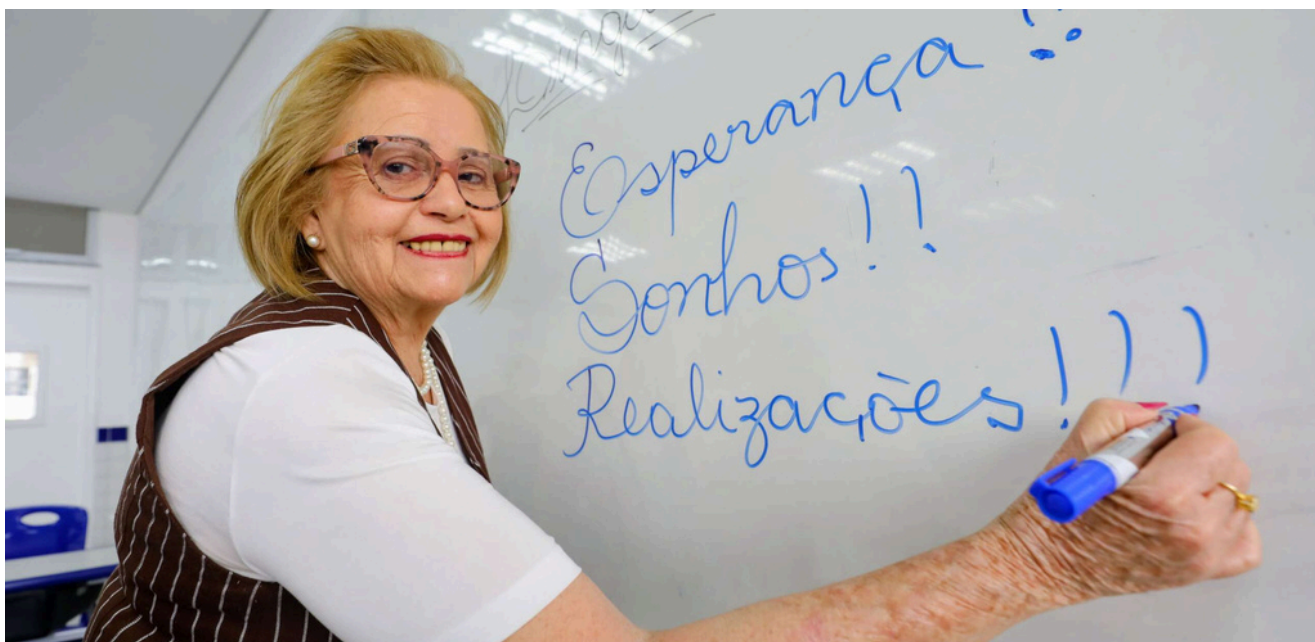 Esperança !!
Sonhos!!
Realizações!!!